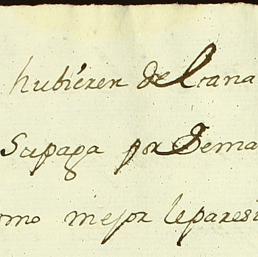 hubieren de Cana
Supaga por Dema
omo mejor lepares